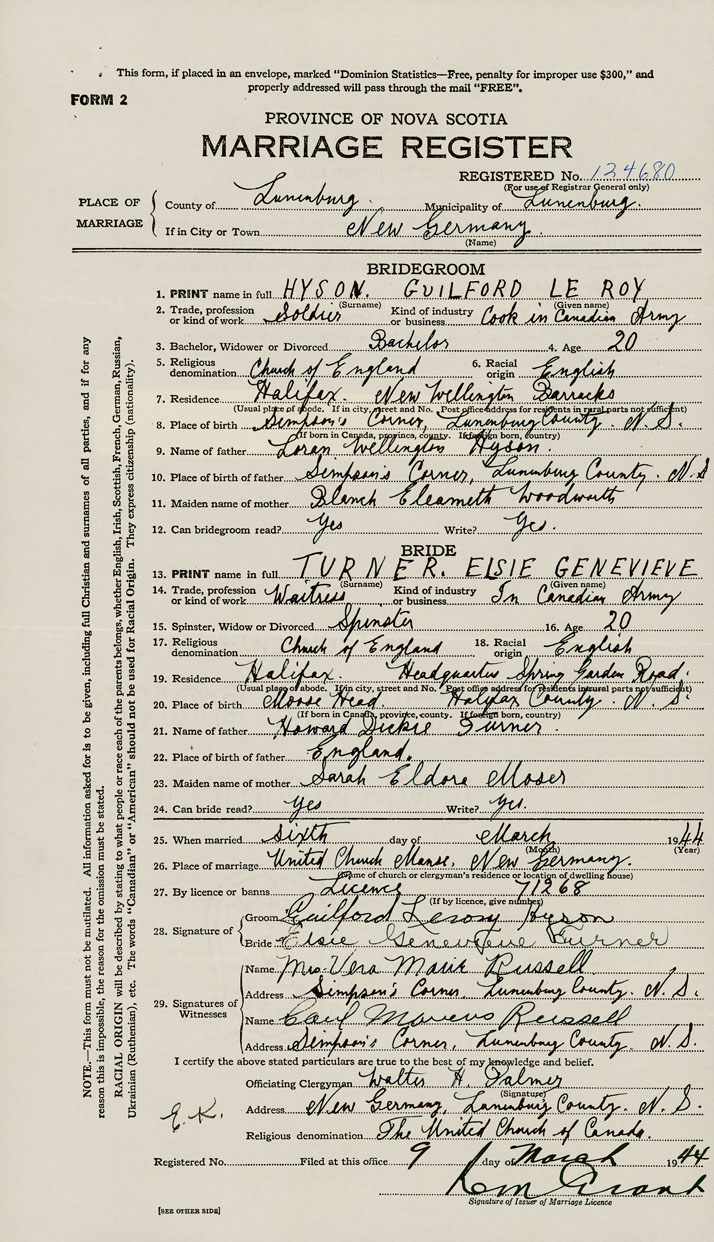 This form, if placed in an envelope, marked "Dominion Statistics—Free, penalty for improper use $300," and
properly addressed will pass through the mail "FREE".
FORM 2
PROVINCE OF NOVA SCOTIA
MARRIAGE REGISTER
REGISTERED No. 124680
(For use of Registrar General only)
PLACE OF MARRIAGE
County of Lunenburg. Municipality of Lunenburg.
If in City or Town New Germany.
(Name)
BRIDEGROOM
1. PRINT name in full HYSON. GUILFORD LE ROY
(Surname) (Given name)
2. Trade, profession or kind of work Soldier Kind of industry or business Cook in Canadian Army
3. Bachelor, Widower or Divorced Bachelor 4. Age 20
5. Religious denomination Church of England 6. Racial origin English
7. Residence Halifax. New Wellington Barracks
(Usual place of abode. If in city, street and No. Post office address for residents in rural parts not sufficient)
8. Place of birth Simpson's Corner, Lunenburg County. N. S.
(If born in Canada, province, county. If foreign born, country)
9. Name of father Loran Wellington Hyson.
10. Place of birth of father Simpson's Corner, Lunenburg County. N. S
11. Maiden name of mother Blanch Eleameth Woodworth
12. Can bridegroom read? Yes Write? Yes.
BRIDE
13. PRINT name in full TURNER. ELSIE GENEVIEVE
(Surname) (Given name)
14. Trade, profession or kind of work Waitress Kind of industry or business In Canadian Army
15. Spinster, Widow or Divorced Spinster 16. Age 20
17. Religious denomination Church of England 18. Racial origin English
19. Residence Halifax. Headquarters Spring Garden Road.
(Usual place of abode. If in city, street and No. Post office address for residents in rural parts not sufficient)
20. Place of birth Moose Head. Halifax County. N. S.
(If born in Canada, province, county. If foreign born, country)
21. Name of father Howard Dickie Turner.
22. Place of birth of father England.
23. Maiden name of mother Sarah Eldora Moser
24. Can bride read? Yes Write? Yes.
25. When married Sixth day of March 1944
(Month) (Year)
26. Place of marriage United Church Manse, New Germany.
(Name of church or clergyman's residence or location of dwelling house)
27. By licence or banns Licence 71268
(If by licence, give number)
28. Signature of
Groom Guilford Leroy Hyson
Bride Elsie Genevieve Turner
29. Signatures of Witnesses
Name Mrs. Vera Marie Russell
Address Simpson's Corner, Lunenburg County. N. S.
Name Carl Marcus Russell
Address Simpson's Corner, Lunenburg County. N. S.
I certify the above stated particulars are true to the best of my knowledge and belief.
Officiating Clergyman Walter H. Palmer
(Signature)
E.K.
Address New Germany, Lunenburg County. N. S.
Religious denomination The United Church of Canada.
Registered No. Filed at this office 9 day of March 1944
Grant
Signature of Issuer of Marriage Licence
[SEE OTHER SIDE]
NOTE.—This form must not be mutilated. All information asked for is to be given, including full Christian and surnames of all parties, and if for any
reason this is impossible, the reason for the omission must be stated.
RACIAL ORIGIN will be described by stating to what people or race each of the parents belongs, whether English, Irish, Scottish, French, German, Russian,
Ukrainian (Ruthenian), etc. The words "Canadian" or "American" should not be used for Racial Origin. They express citizenship (nationality).